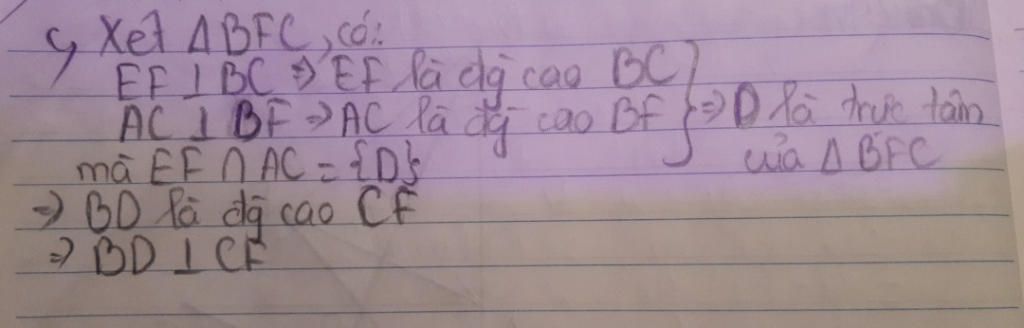 c, Xét Δ BFC, có:
EF ⊥ BC ⇒ EF là đg cao BC
AC ⊥ BF ⇒ AC là đg cao BF } ⇒ D là trực tâm
mà EF ∩ AC = {D} của Δ BFC
⇒ BD là đg cao CF
⇒ BD ⊥ CF